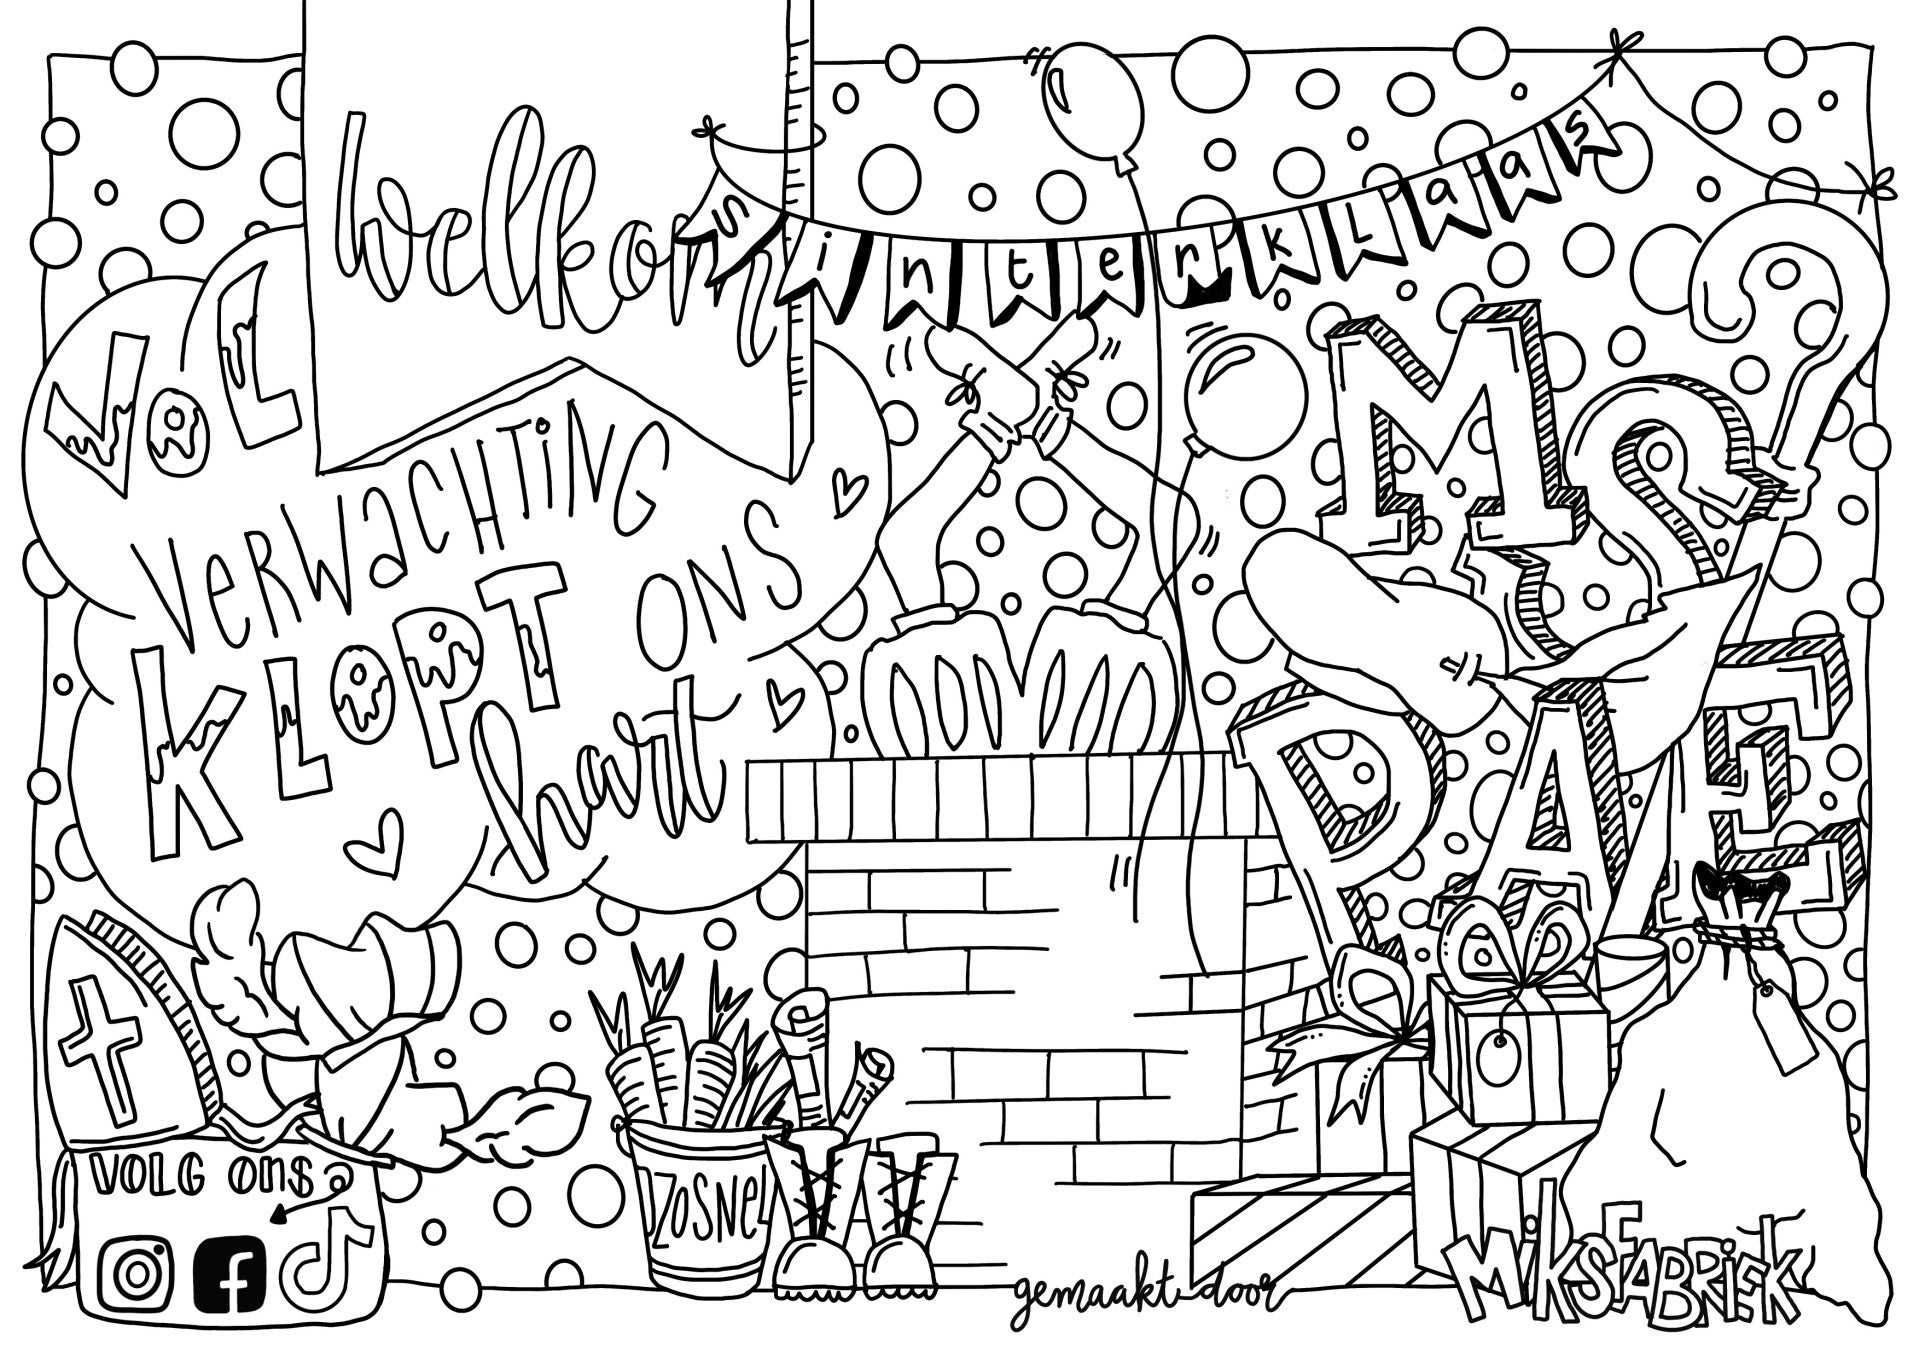 welkom
Sinterklaas
VOL
VERWACHTING
KLOPT ONS
hart
MS
PAE
VOLG ONS @
OZOSNeL
gemaakt door
MiKSFABRiEK